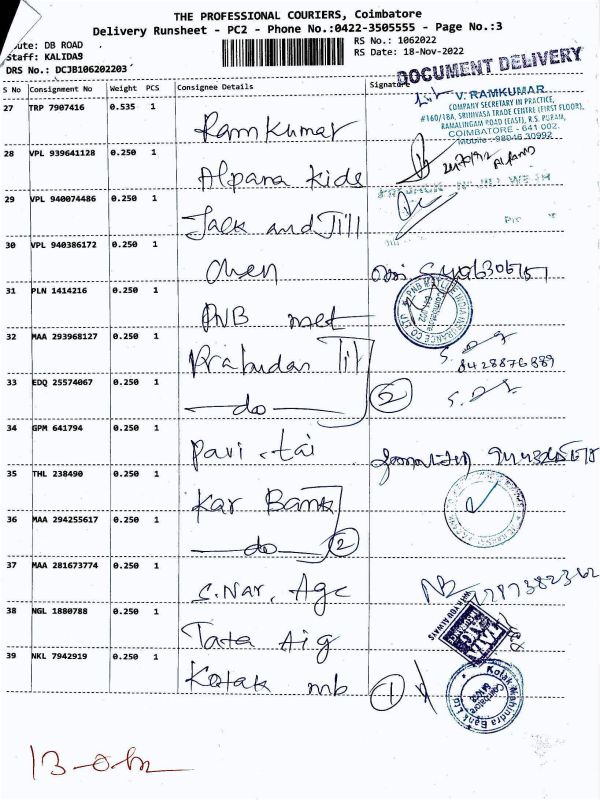 THE PROFESSIONAL COURIERS, Coimbatore
Delivery Runsheet - PC2 - Phone No.:0422-3505555 - Page No.:3
ute: DB ROAD RS No.: 1062022
Staff: KALIDAS RS Date: 18-Nov-2022
DRS No.: DCJB106202203
DOCUMENT DELIVERY
S No Consignment No Weight PCS Consignee Details Signature
V. RAMKUMAR
COMPANY SECRETARY IN PRACTICE,
#160/18A, SRINIVASA TRADE CENTRE (FIRST FLOOR),
RAMALINGAM ROAD (EAST), R.S. PURAM,
COIMBATORE - 641 002.
Mobile - 98046 30992
27 TRP 7907416 0.535 1 Ramkumar
28 VPL 939641128 0.250 1 Alpana kids
29 VPL 940074486 0.250 1 Jack and Jill
30 VPL 940386172 0.250 1 Chen
31 PLN 1414216 0.250 1 PNB met
PNB METLIFE INDIA INSURANCE CO LTD
Coimbatore
32 MAA 293968127 0.250 1 Prabudas Tit
8428876889
33 EDQ 25574067 0.250 1 do 2
34 GPM 641794 0.250 1 Pavi tai
35 THL 238490 0.250 1 Kar Bank
36 MAA 294255617 0.250 1 do 2
37 MAA 281673774 0.250 1 S. Nar. Age
38 NGL 1880788 0.250 1 Tata Aig
WITH YOU ALWAYS
TATA
AIG
39 NKL 7942919 0.250 1 Kotak mb 1
Kotak Mahindra Bank Ltd
Coimbatore
13